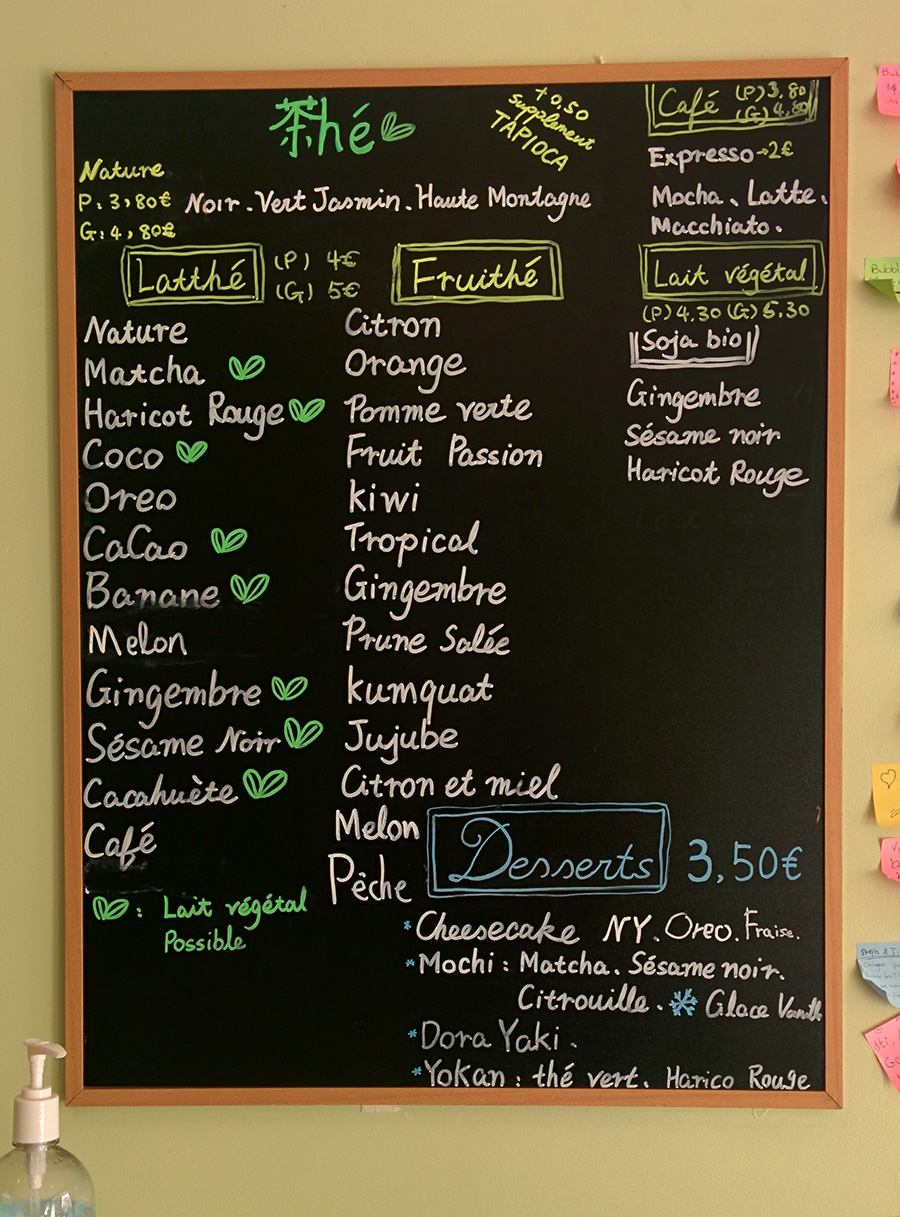 茶hé
+0,50
supplement
TAPIOCA
Nature
P: 3,80€
G: 4,80€
Noir. Vert Jasmin. Haute Montagne
Latthé
(P) 4€
(G) 5€
Nature
Matcha
Haricot Rouge
Coco
Oreo
CaCao
Banane
Melon
Gingembre
Sésame Noir
Cacahuète
Café
: Lait végétal
Possible
Fruithé
Citron
Orange
Pomme verte
Fruit Passion
kiwi
Tropical
Gingembre
Prune Salée
kumquat
Jujube
Citron et miel
Melon
Pêche
Café (P) 3,80
(G) 4,80
Expresso→2€
Mocha. Latte.
Macchiato.
Lait végétal
(P) 4.30 (G) 5.30
Soja bio
Gingembre
Sésame noir
Haricot Rouge
Desserts 3,50€
*Cheesecake NY. Oreo. Fraise.
*Mochi: Matcha. Sésame noir.
Citrouille. Glace Vanill
*Dora Yaki.
*Yokan: thé vert. Harico Rouge